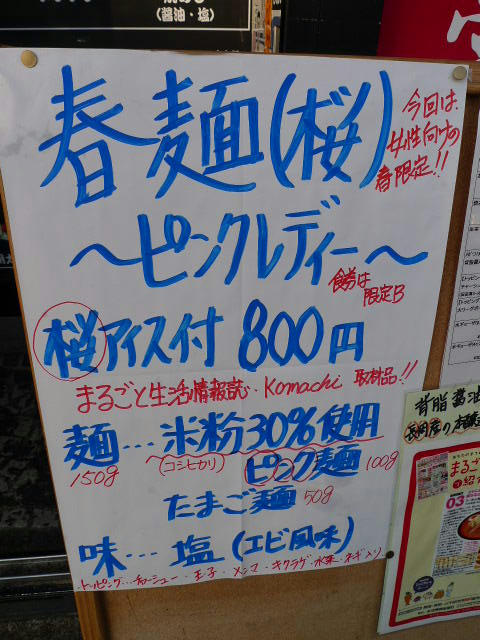 (醤油・塩)
春麺(桜)
今回は
女性向けの
春限定!!
～ピンクレディー～
食券は
限定B
桜アイス付 800円
まるごと生活情報誌・Komachi 取材品!!
麺…米粉30%使用
150g (コシヒカリ) ピンク麺 100g
たまご麺 50g
味…塩(エビ風味)
トッピング…チャーシュー・玉子・メンマ・キクラゲ・水菜・ネギ入り
背脂醤油
まるご
03